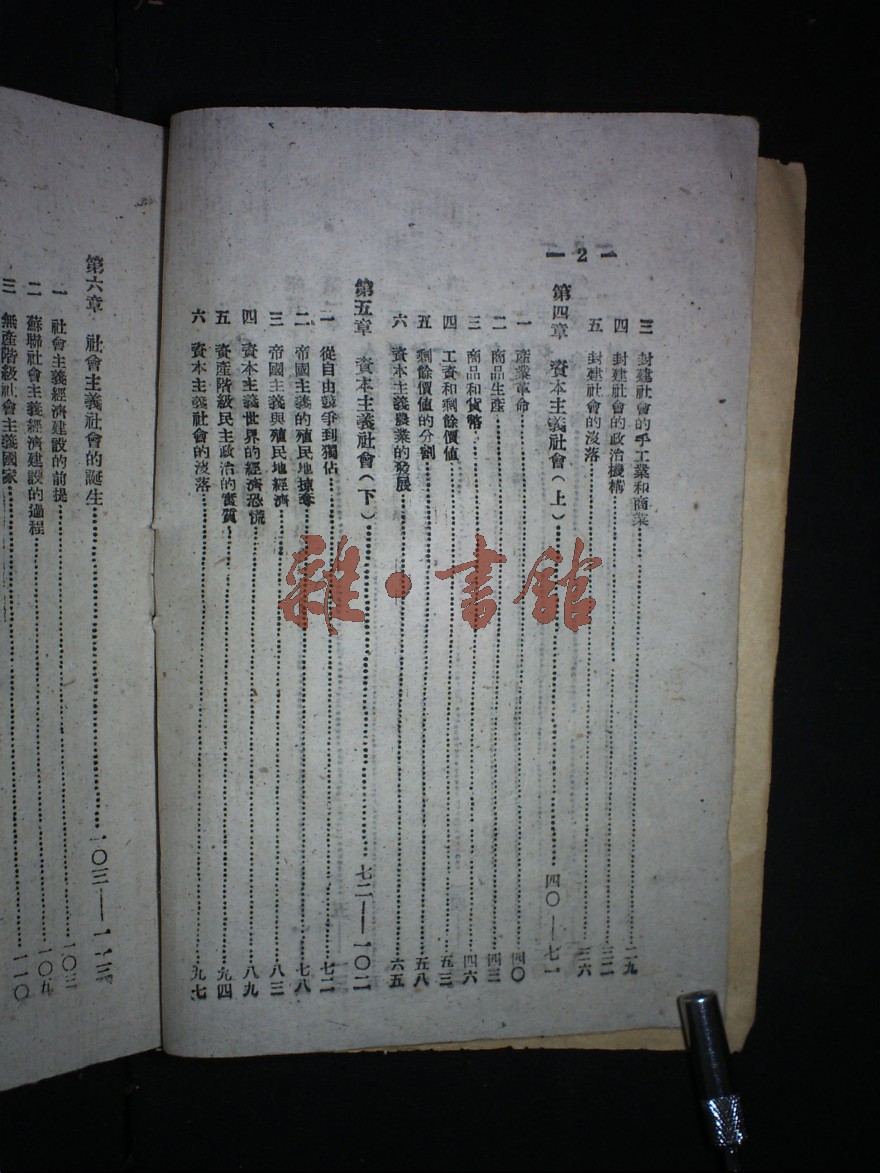 — 2 —
三 封建社會的手工業和商業 二九
四 封建社會的政治機構 三二
五 封建社會的沒落 三六
第四章 資本主義社會(上) 四〇——七一
一 產業革命 四〇
二 商品生產 四三
三 商品和貨幣 四六
四 工資和剩餘價值 五三
五 剩餘價值的分割 五八
六 資本主義農業的發展 六五
第五章 資本主義社會(下) 七二——一〇二
一 從自由競爭到獨佔 七二
二 帝國主義的殖民地掠奪 七八
三 帝國主義與殖民地經濟 八三
四 資本主義世界的經濟恐慌 八九
五 資產階級民主政治的實質 九四
六 資本主義社會的沒落 九七
第六章 社會主義社會的誕生 一〇三——一一三
一 社會主義經濟建設的前提 一〇三
二 蘇聯社會主義經濟建設的過程 一〇五
三 無產階級社會主義國家 一一〇
雜·書館